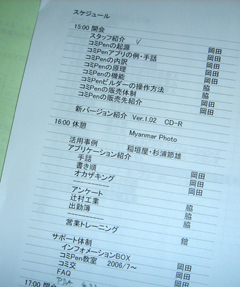 スケジュール
15:00 開会
スタッフ紹介
コミPenの起源 岡田
コミPenアプリの例・手話 岡田
コミPenの内訳 岡田
コミPenの原理 岡田
コミPenの機能 岡田
コミPenビルダーの操作方法 脇
コミPenの販売体制 岡田
コミPenの販売先紹介 岡田
新バージョン紹介 Ver.1.02 CD-R
16:00 休憩 Myanmar Photo
活用事例 稲垣屋・杉浦節雄
アプリケーション紹介
手話 岡田
書き順 岡田
オカザキング 岡田
アンケート 岡田
辻村工業 脇
出勤簿 脇
営業トレーニング
サポート体制
インフォメーションBOX 岡田
コミPen教室 2006/7～ 岡田
コミ交 岡田
FAQ 岡田
17:00 閉会